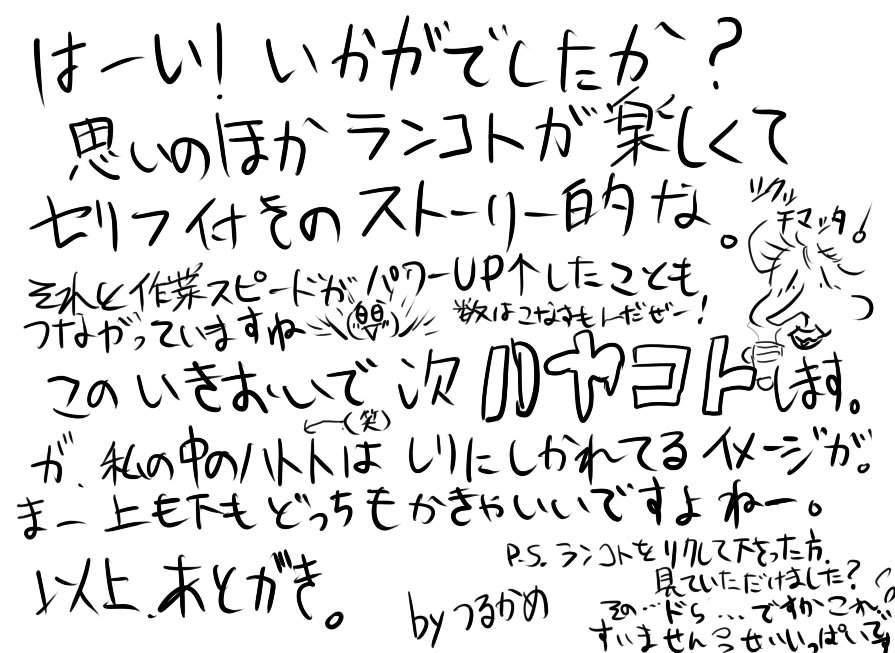 はーい！いかがでしたか？
思いのほかランコトが楽しくて
セリフ付きのストーリー的な。
ツクッ
チマッタ！
それと作業スピードがパワーUP↑したことも
つながっていますね
数はこなすもんだぜー！
このいきおいで次ハヤコトします。
←(笑)
が、私の中のハトトはしりにしかれてるイメージが。
まー上も下もどっちもかきゃいいですよねー。
以上、あとがき。
by つるかめ
P.S. ランコトをリクして下さった方、
見ていただけました？
その…ドS…ですかこれ…
すいません せいいっぱいです